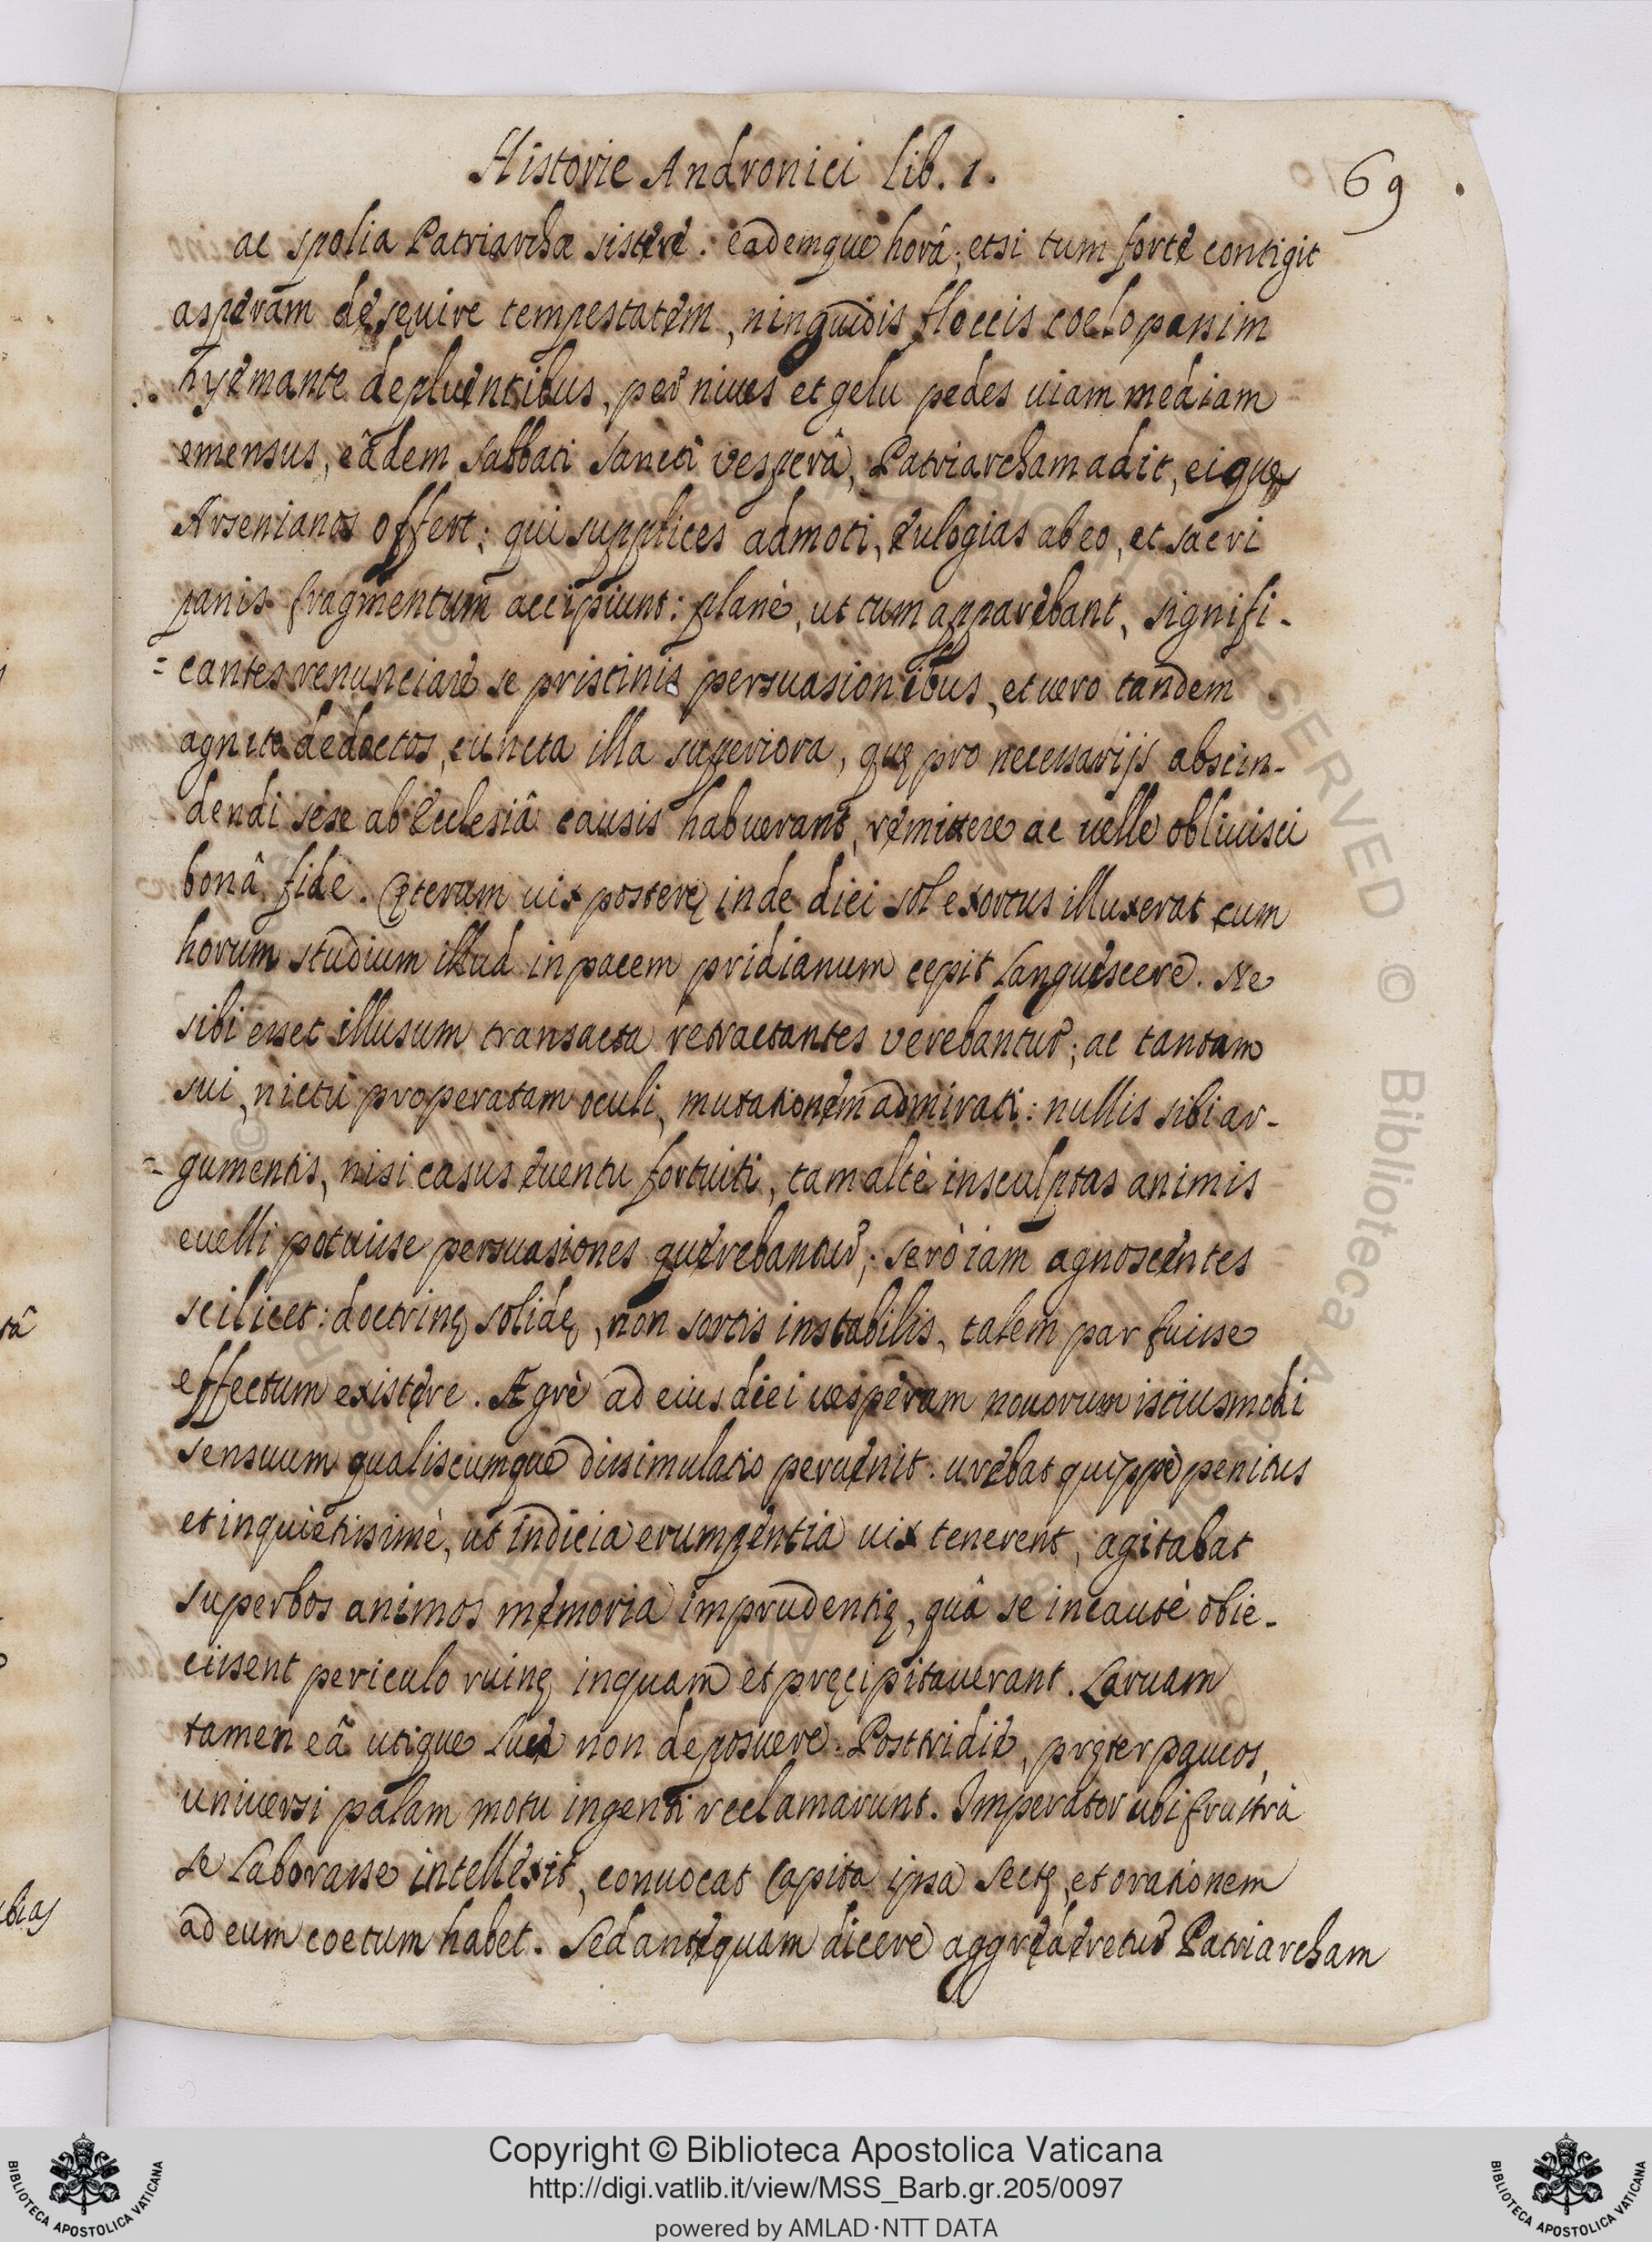 Historie Andronici lib. 1.
69
ac spolia Patriarchæ sistere: eademque horâ, etsi tum forte contigit
asperam desęuire tempestatem, ninguidis floccis coelo passim
hyemante depluentibus, per niues et gelu pedes uiam mediam
emensus, eâdem sabbati sancti vesperâ, Patriarcham adit, eique
Arsenianos offert: qui supplices admoti, eulogias ab eo, et sacri
panis fragmentum accipiunt: planè, ut tum apparebant, signifi-
=cantes renunciare se pristinis persuasionibus, et uero tandem
agnito dedoctos, cuncta illa superiora, quę pro necessarijs abscin-
dendi sese ab Ecclesiâ causis habuerant, remittere ac uelle obliuisci
bonâ fide. Cęterum uix posterę inde diei sol exortus illuxerat cum
horum studium illud in pacem pridianum cepit languescere. Ne
sibi esset illusum transacta retractantes verebantur; ac tantam
sui, nictu properatam oculi, mutationem admirati: nullis sibi ar-
=gumentis, nisi casus euentu fortuiti, tam altè insculptas animis
euelli potuisse persuasiones querebantur; serò iam agnoscentes
scilicet: doctrinę solidę, non sortis instabilis, talem par fuisse
effectum existere. Ægrè ad eius diei uesperam nouorum istiusmodi
sensuum qualiscumque dissimulatio peruenit. urebat quippe penitus
et inquietissimè, ut indicia erumpentia uix tenerent, agitabat
superbos animos memoria imprudentię, quâ se incautè obie-
cissent periculo ruinę inquam et pręcipitauerant. Laruam
tamen eâ utique luce non deposuere. Postridie, pręter paucos,
uniuersi palam motu ingenti reclamarunt. Imperator ubi frustrà
se laborasse intellexit, conuocat Capita ipsa sectę, et orationem
ad eum coetum habet. Sed antequam dicere aggrederetur Patriarcham
râ
ubias
Copyright © Biblioteca Apostolica Vaticana
http://digi.vatlib.it/view/MSS_Barb.gr.205/0097
powered by AMLAD·NTT DATA
BIBLIOTECA APOSTOLICA VATICANA
BIBLIOTECA APOSTOLICA VATICANA